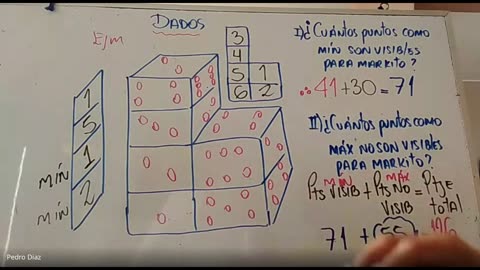 DADOS
E/m
1
5
MÍN 1
MÍN 2
3
4
5 1
6 2
I)¿CUÁNTOS PUNTOS COMO
MÍN SON VISIBLES
PARA MARKITO?
∴ 41+30=71
II)¿CUÁNTOS PUNTOS COMO
MÁX NO SON VISIBLES
PARA MARKITO?
MÍN MÁX
Pts VISIB + Pts NO = PtJE
VISIB TOTAL
71 + (55)
Pedro Diaz